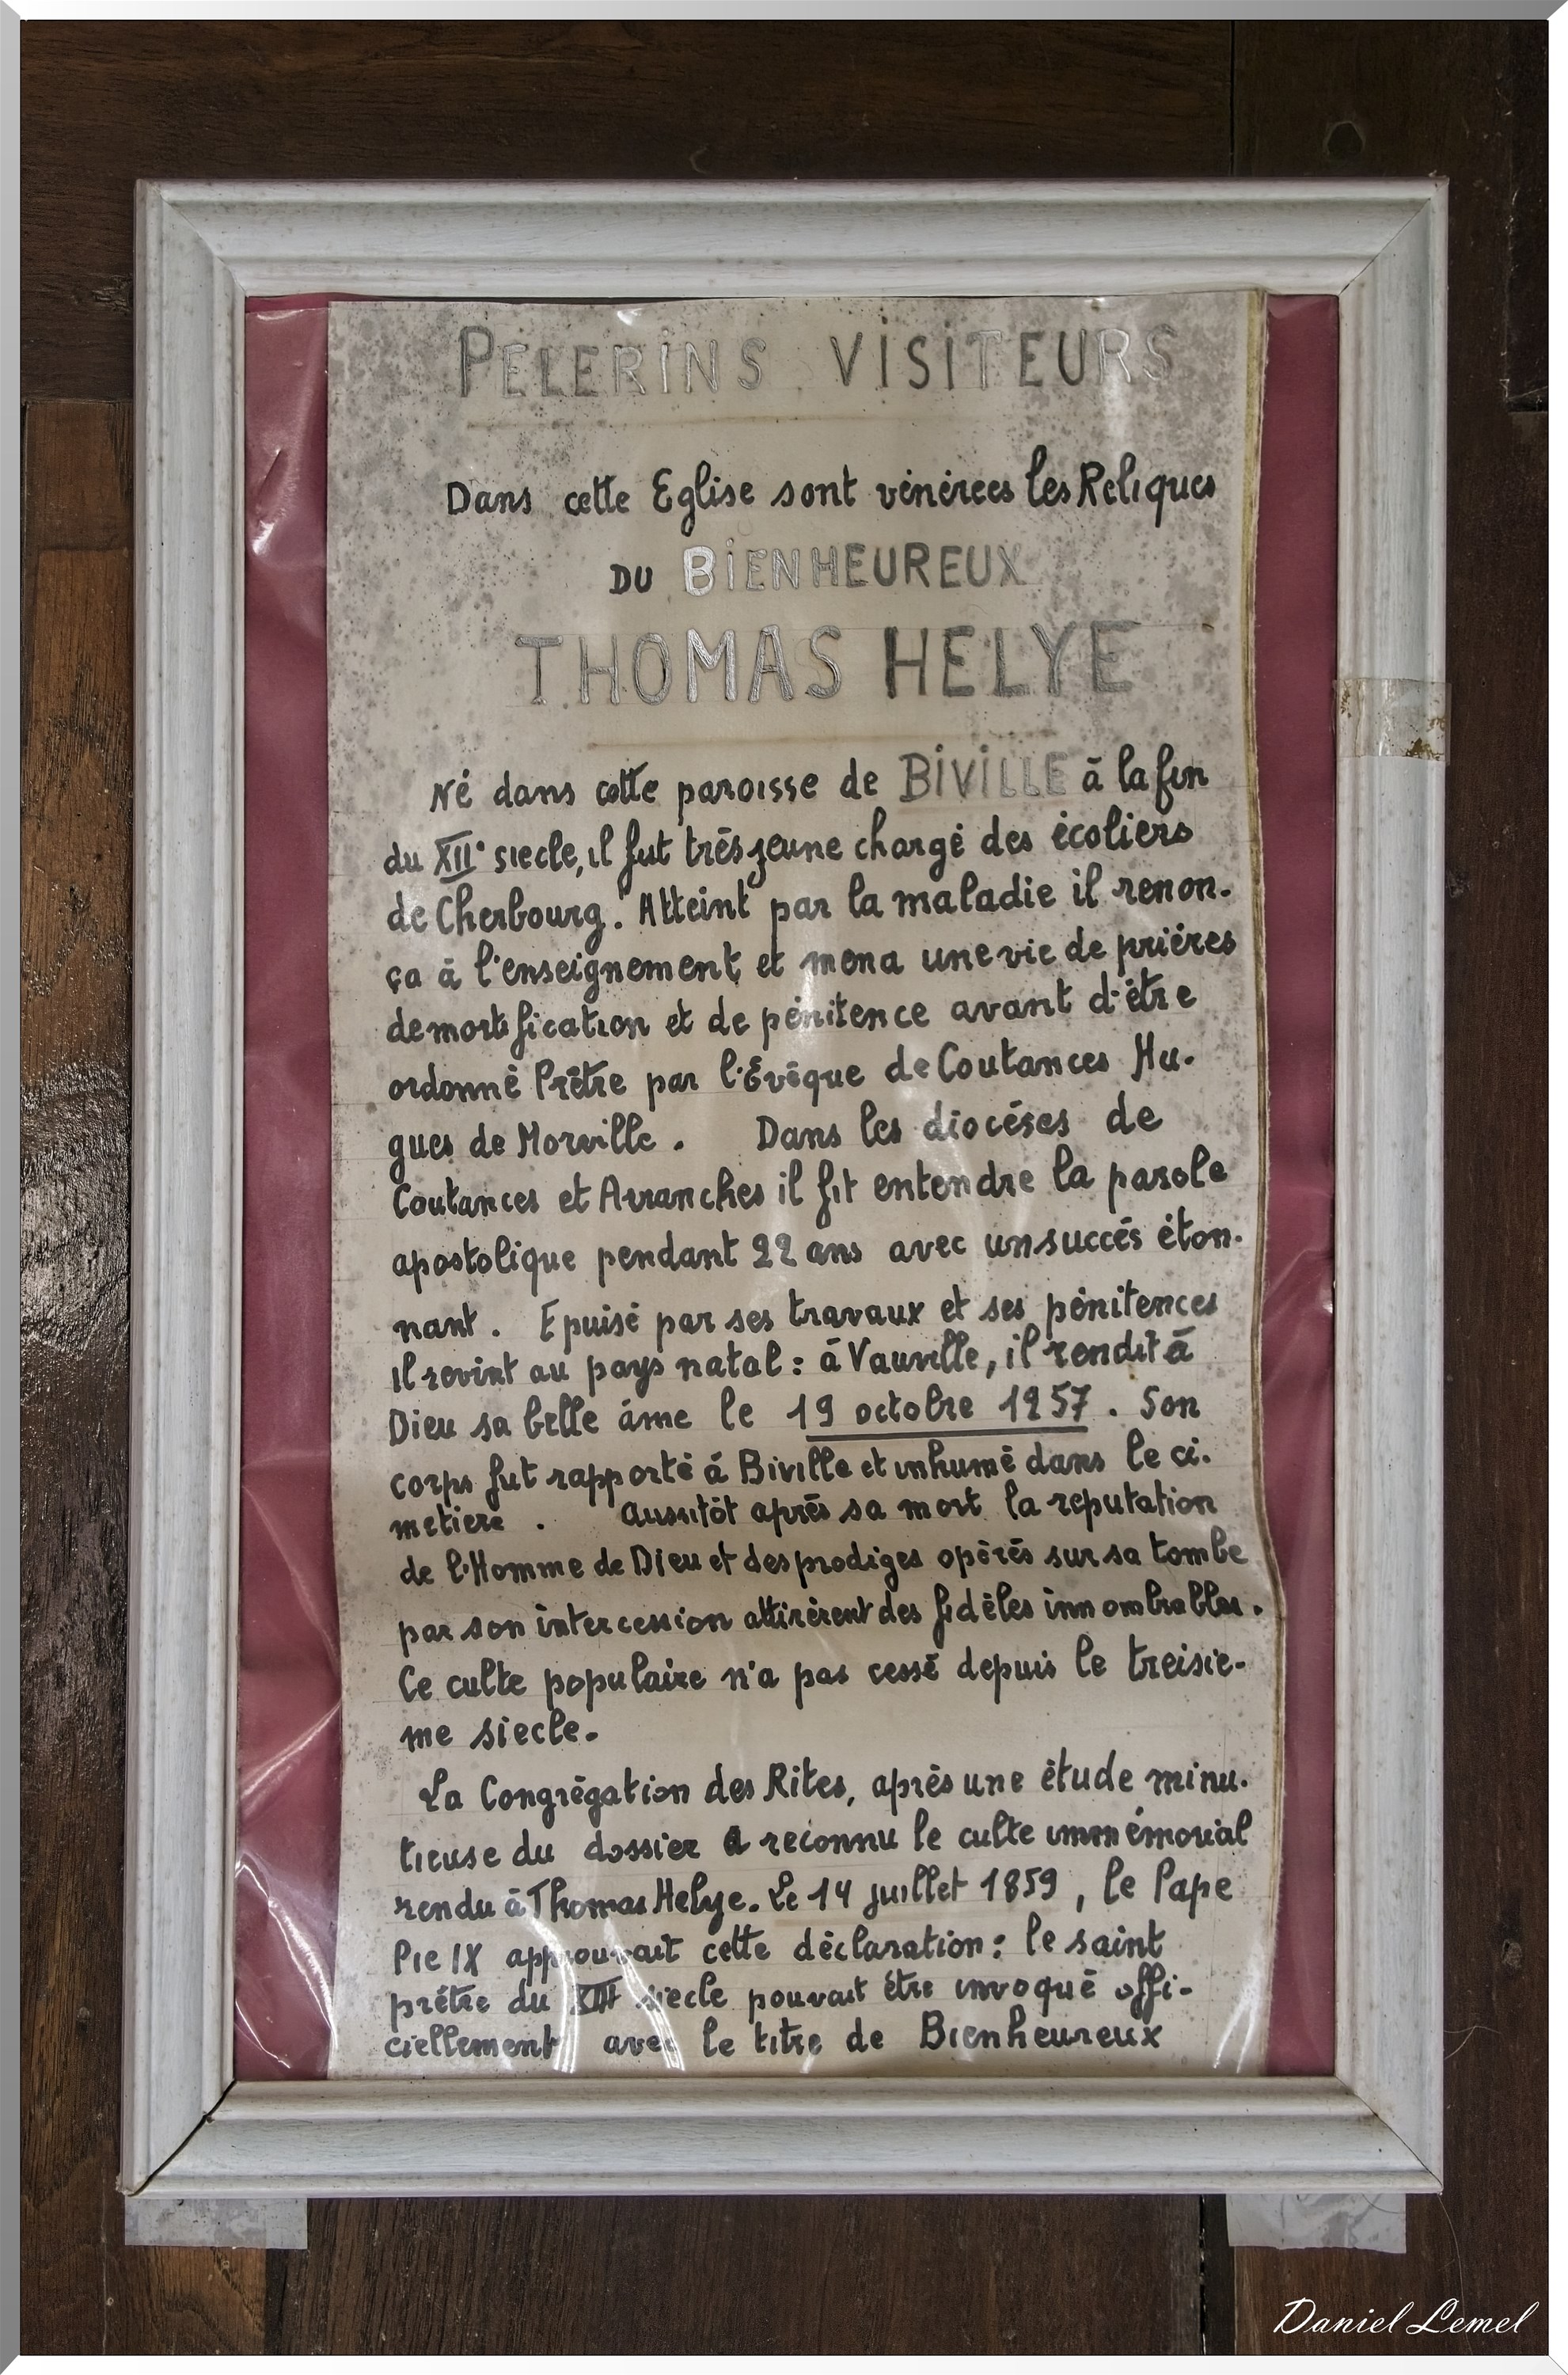 PELERINS VISITEURS
Dans cette Eglise sont vénérées les Reliques
DU BIENHEUREUX
THOMAS HELYE
Né dans cette paroisse de BIVILLE à la fin
du XIIe siecle, il fut très jeune chargé des écoliers
de Cherbourg. Atteint par la maladie il renon-
ça à l'enseignement et mena une vie de prières
de mortification et de pénitence avant d'être
ordonné Prêtre par l'Evêque de Coutances Hu-
gues de Morville. Dans les diocéses de
Coutances et Avranches il fit entendre la parole
apostolique pendant 22 ans avec un succès éton-
nant. Epuisé par ses travaux et ses pénitences
il revint au pays natal : à Vauville, il rendit à
Dieu sa belle âme le 19 octobre 1257. Son
corps fut rapporté à Biville et inhumé dans le ci-
metiere. Aussitôt après sa mort la reputation
de l'Homme de Dieu et des prodiges opérés sur sa tombe
par son intercession attirèrent des fidèles innombrables.
Ce culte populaire n'a pas cessé depuis le treisie-
me siecle.
La Congrégation des Rites, après une étude minu-
tieuse du dossier a reconnu le culte immémorial
rendu à Thomas Helye. Le 14 juillet 1859, le Pape
Pie IX approuvait cette déclaration : le saint
prêtre du XIII siecle pouvait être invoqué offi-
ciellement avec le titre de Bienheureux
Daniel Lemel